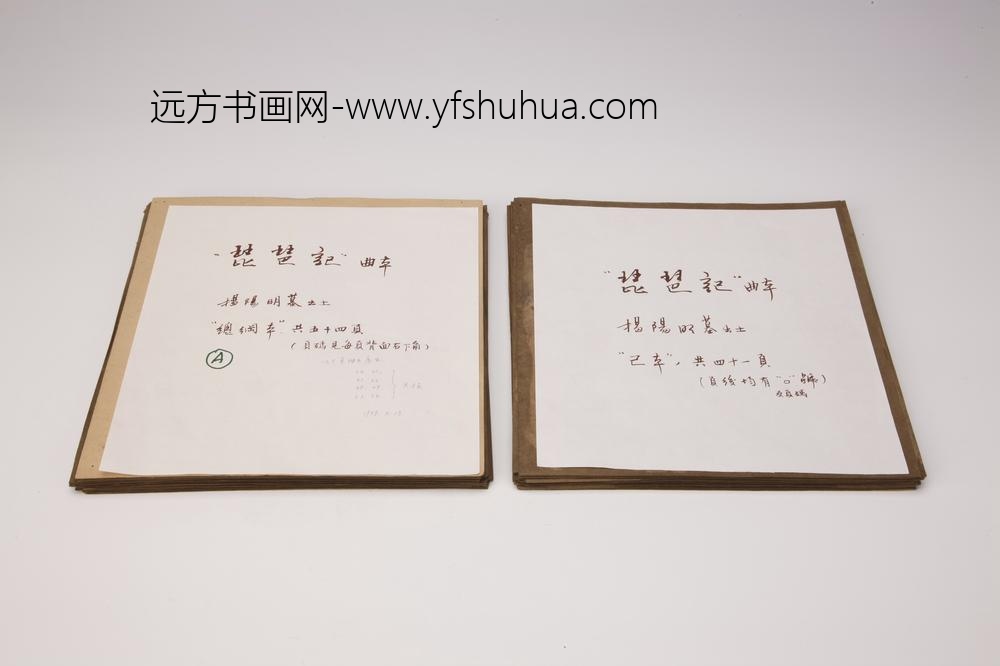 远方书画网-www.yfshuhua.com
"琵琶記"曲本
揭陽明墓出土
"總綱本",共五十四頁
(頁碼見每頁背面右下角)
A
"琵琶記"曲本
揭陽明墓出土
"己本",共四十一頁
(頁後均有"己"號
及頁碼)